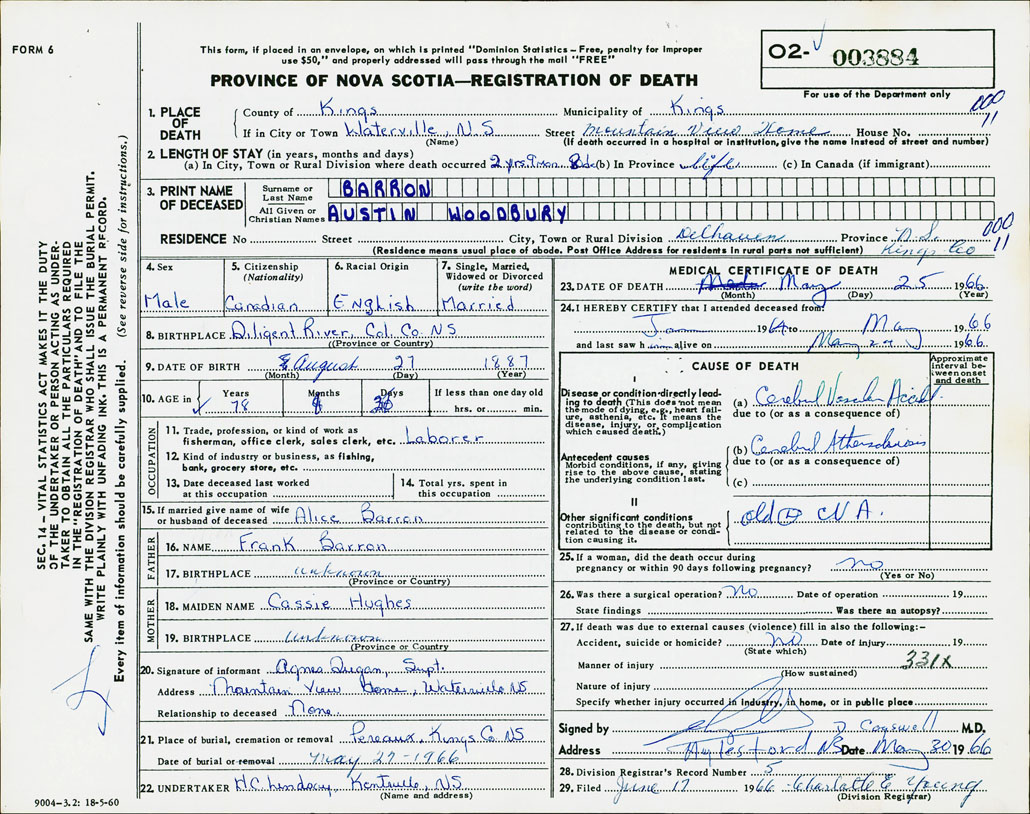 FORM 6
This form, if placed in an envelope, on which is printed "Dominion Statistics – Free, penalty for improper
use $50," and properly addressed will pass through the mail "FREE"
PROVINCE OF NOVA SCOTIA—REGISTRATION OF DEATH
O2- 003884
For use of the Department only
000
11
1. PLACE OF DEATH
County of Kings Municipality of Kings
If in City or Town Waterville, N.S Street Mountain View Home House No.
(Name) (If death occurred in a hospital or institution, give the name instead of street and number)
2. LENGTH OF STAY (in years, months and days)
(a) In City, Town or Rural Division where death occurred 2 yrs (b) In Province Life (c) In Canada (if immigrant)
3. PRINT NAME OF DECEASED
Surname or Last Name BARRON
All Given or Christian Names AUSTIN WOODBURY
000
11
RESIDENCE No Street City, Town or Rural Division Delhaven Province N.S.
Kings Co
(Residence means usual place of abode. Post Office Address for residents in rural parts not sufficient)
4. Sex
Male
5. Citizenship
(Nationality)
Canadian
6. Racial Origin
English
7. Single, Married,
Widowed or Divorced
(write the word)
Married
8. BIRTHPLACE Diligent River, Col. Co. NS
(Province or Country)
9. DATE OF BIRTH August 27 1887
(Month) (Day) (Year)
10. AGE in
Years Months Days If less than one day old
78 hrs. or min.
OCCUPATION
11. Trade, profession, or kind of work as
fisherman, office clerk, sales clerk, etc. Laborer
12. Kind of industry or business, as fishing,
bank, grocery store, etc.
13. Date deceased last worked
at this occupation
14. Total yrs. spent in
this occupation
15. If married give name of wife
or husband of deceased Alice Barron
FATHER
16. NAME Frank Barron
17. BIRTHPLACE unknown
(Province or Country)
MOTHER
18. MAIDEN NAME Cassie Hughes
19. BIRTHPLACE unknown
(Province or Country
20. Signature of informant Agnes Dugan, Supt.
Address Mountain View Home, Waterville NS
Relationship to deceased None
21. Place of burial, cremation or removal Pereaux, Kings Co NS
Date of burial or removal May 27-1966
22. UNDERTAKER H.C. Lindsay, Kentville, NS
(Name and address)
9004–3.2: 18-5-60
MEDICAL CERTIFICATE OF DEATH
23. DATE OF DEATH May 25 1966
(Month) (Day) (Year)
24. I HEREBY CERTIFY that I attended deceased from:
Jan 1964 to May 1966
and last saw him alive on May 1966.
CAUSE OF DEATH
Approximate
interval be-
tween onset
and death
I
Disease or condition directly lead-
ing to death (This does not mean
the mode of dying, e.g., heart fail-
ure, asthenia, etc. It means the
disease, injury, or complication
which caused death.)
(a) Cerebral Vascular Accid.
due to (or as a consequence of)
Antecedent causes
Morbid conditions, if any, giving
rise to the above cause, stating
the underlying condition last.
(b) Cerebral Atherosclerosis
due to (or as a consequence of)
(c)
II
Other significant conditions
contributing to the death, but not
related to the disease or condi-
tion causing it.
old CVA.
25. If a woman, did the death occur during
pregnancy or within 90 days following pregnancy? no
(Yes or No)
26. Was there a surgical operation? no Date of operation 19
State findings Was there an autopsy?
27. If death was due to external causes (violence) fill in also the following:–
Accident, suicide or homicide? no Date of injury 19
(State which)
Manner of injury 331X
(How sustained)
Nature of injury
Specify whether injury occurred in industry, in home, or in public place
Signed by D Conswell M.D.
Address Aylesford NS Date May 30 1966
28. Division Registrar's Record Number 5
29. Filed June 17 1966 Charlotte E Young
(Division Registrar)
SEC. 14. VITAL STATISTICS ACT MAKES IT THE DUTY
OF THE UNDERTAKER OR PERSON ACTING AS UNDER-
TAKER TO OBTAIN ALL THE PARTICULARS REQUIRED
IN THE "REGISTRATION OF DEATH" AND TO FILE THE
SAME WITH THE DIVISION REGISTRAR WHO SHALL ISSUE THE BURIAL PERMIT.
WRITE PLAINLY WITH UNFADING INK. THIS IS A PERMANENT RECORD.
Every item of information should be carefully supplied. (See reverse side for instructions.)